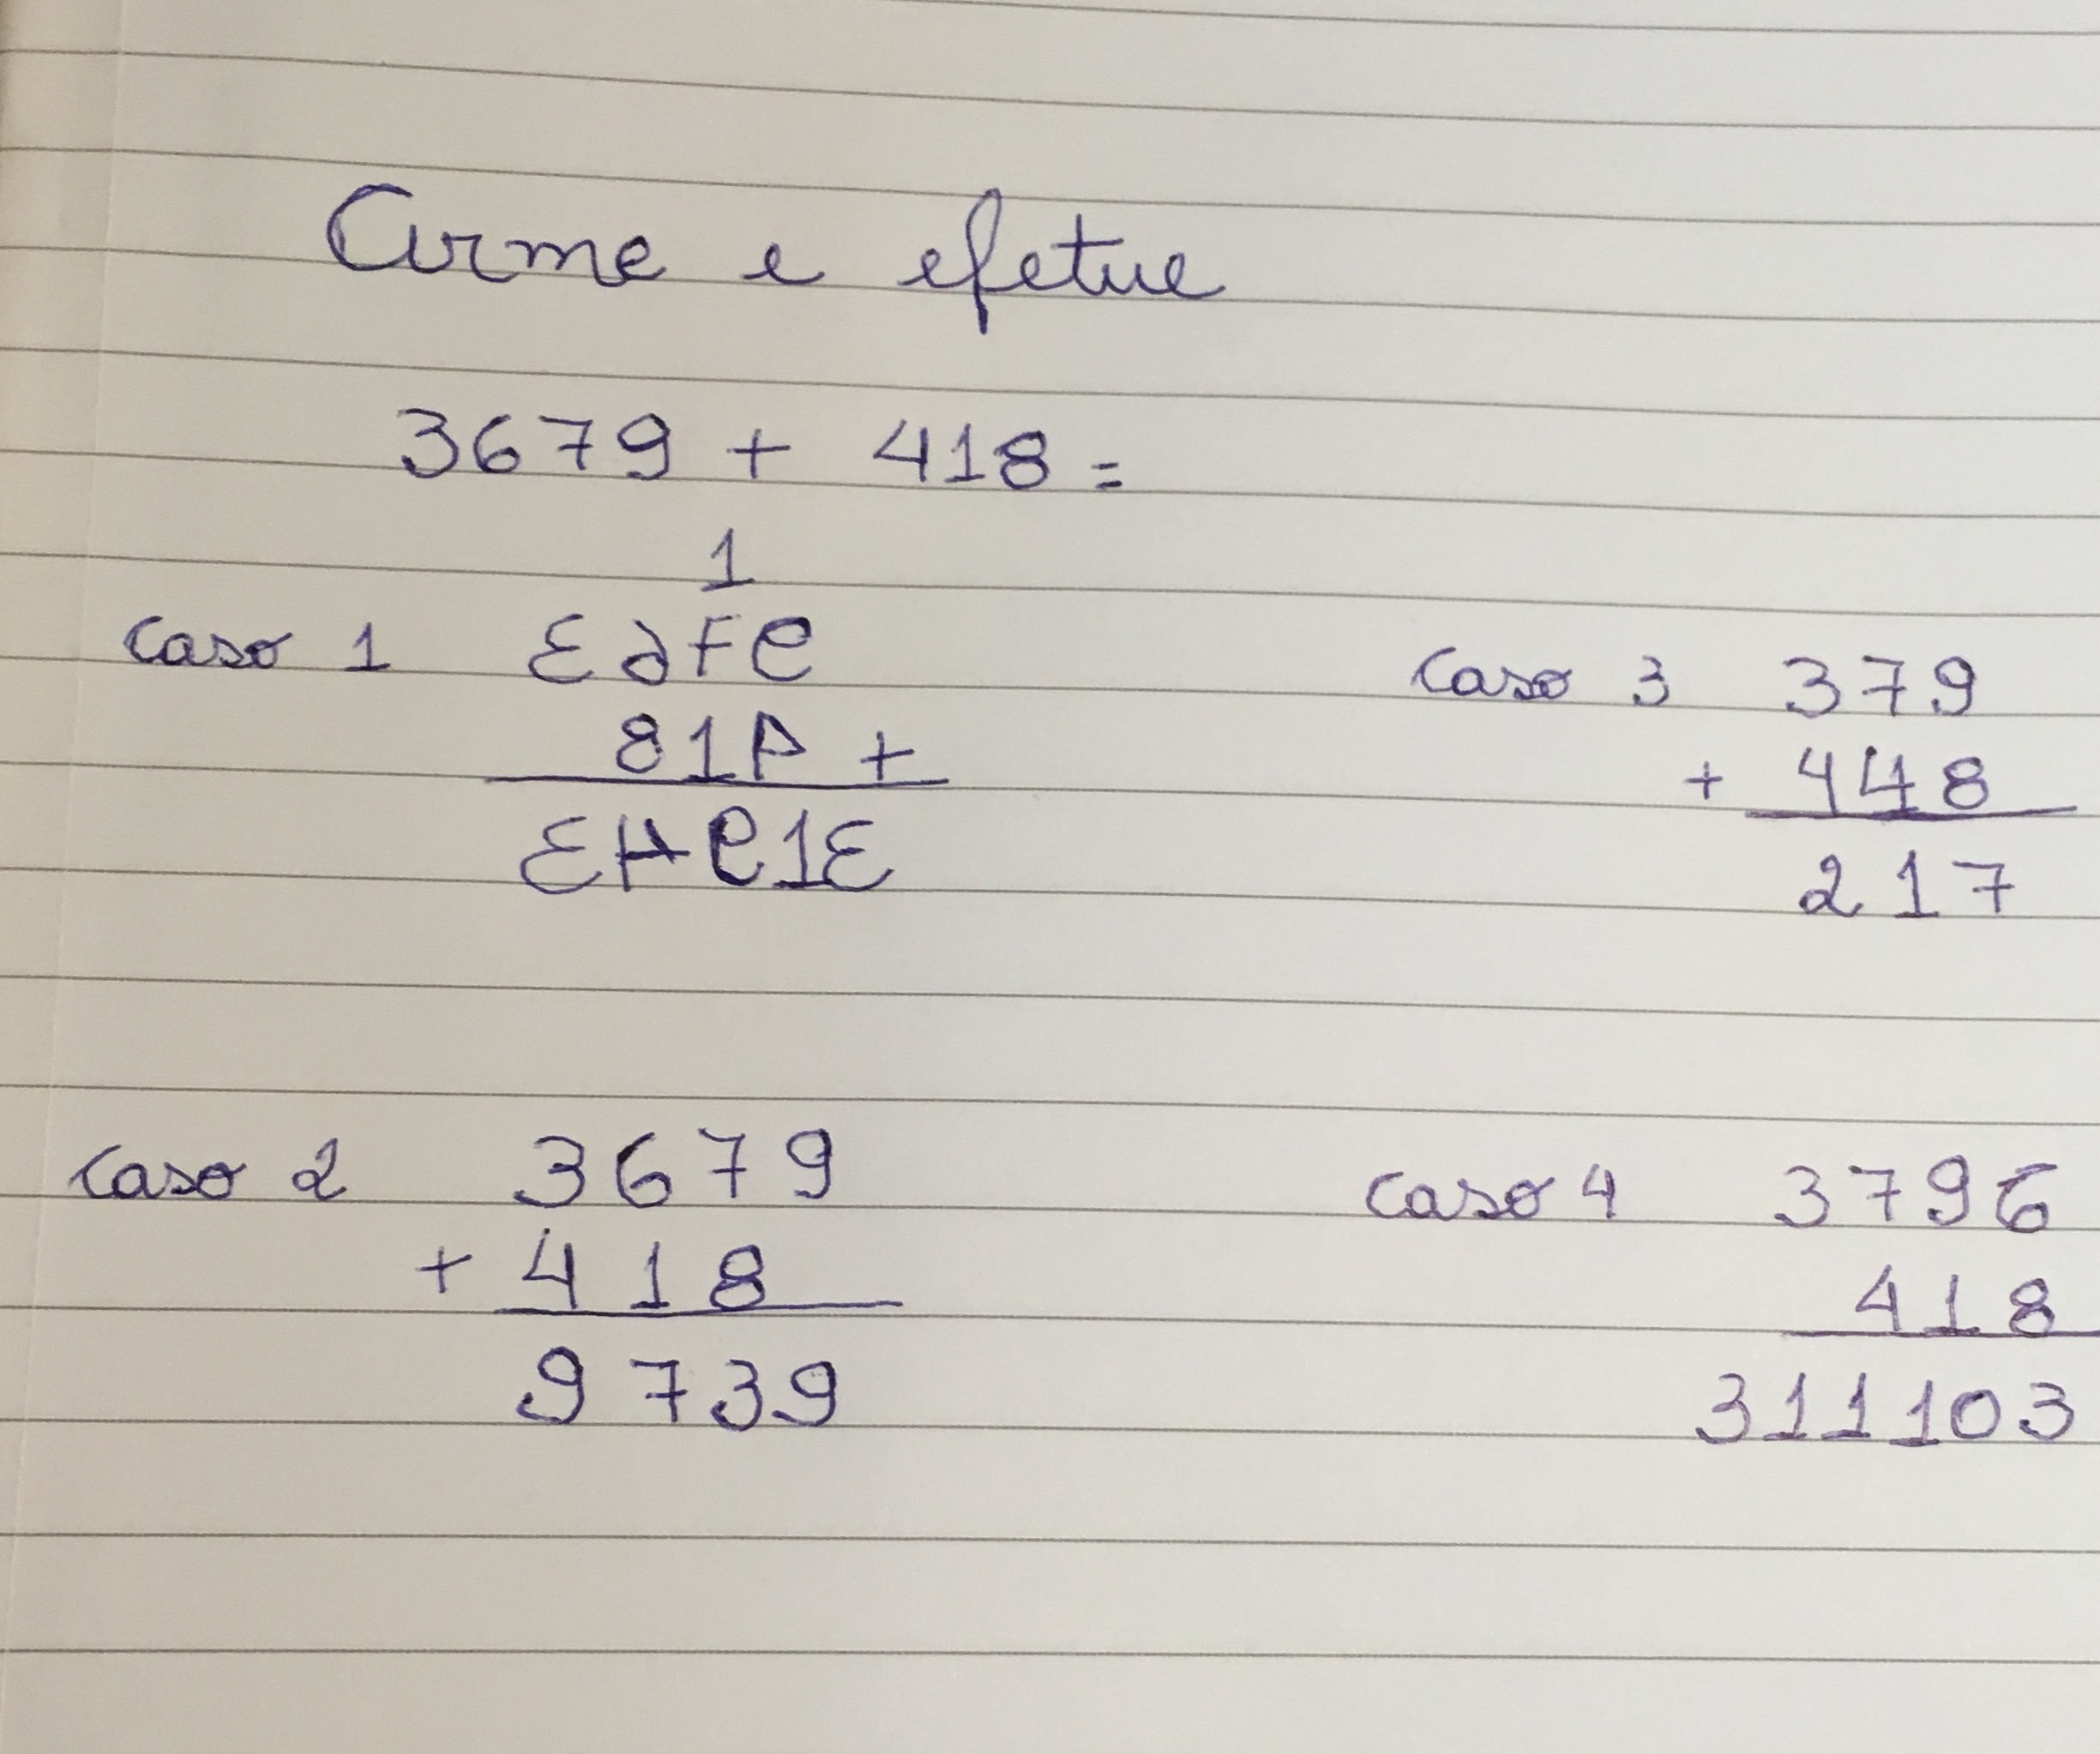 Arme e efetue
3679 + 418 =
1
caso 1 ƐმŦᑫ
81
caso 3 379
+ 448
217
caso 2 3679
+ 418
9739
caso 4 3796
418
311103